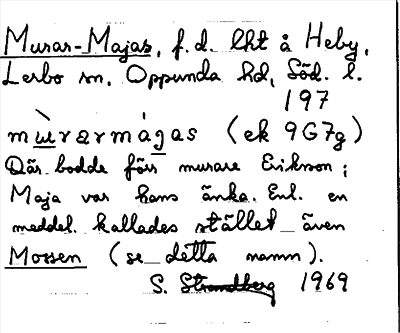 Murar-Majas, f.d. lht å Heby,
Lerbo sn, Oppunda hd, Söd. l.
197
mùrarmágas (ek 9G7g)
Där bodde förr murare Erikson;
Maja var hans änka. Enl. en
meddel. kallades stället även
Mossen (se detta namn).
S. Strandberg 1969